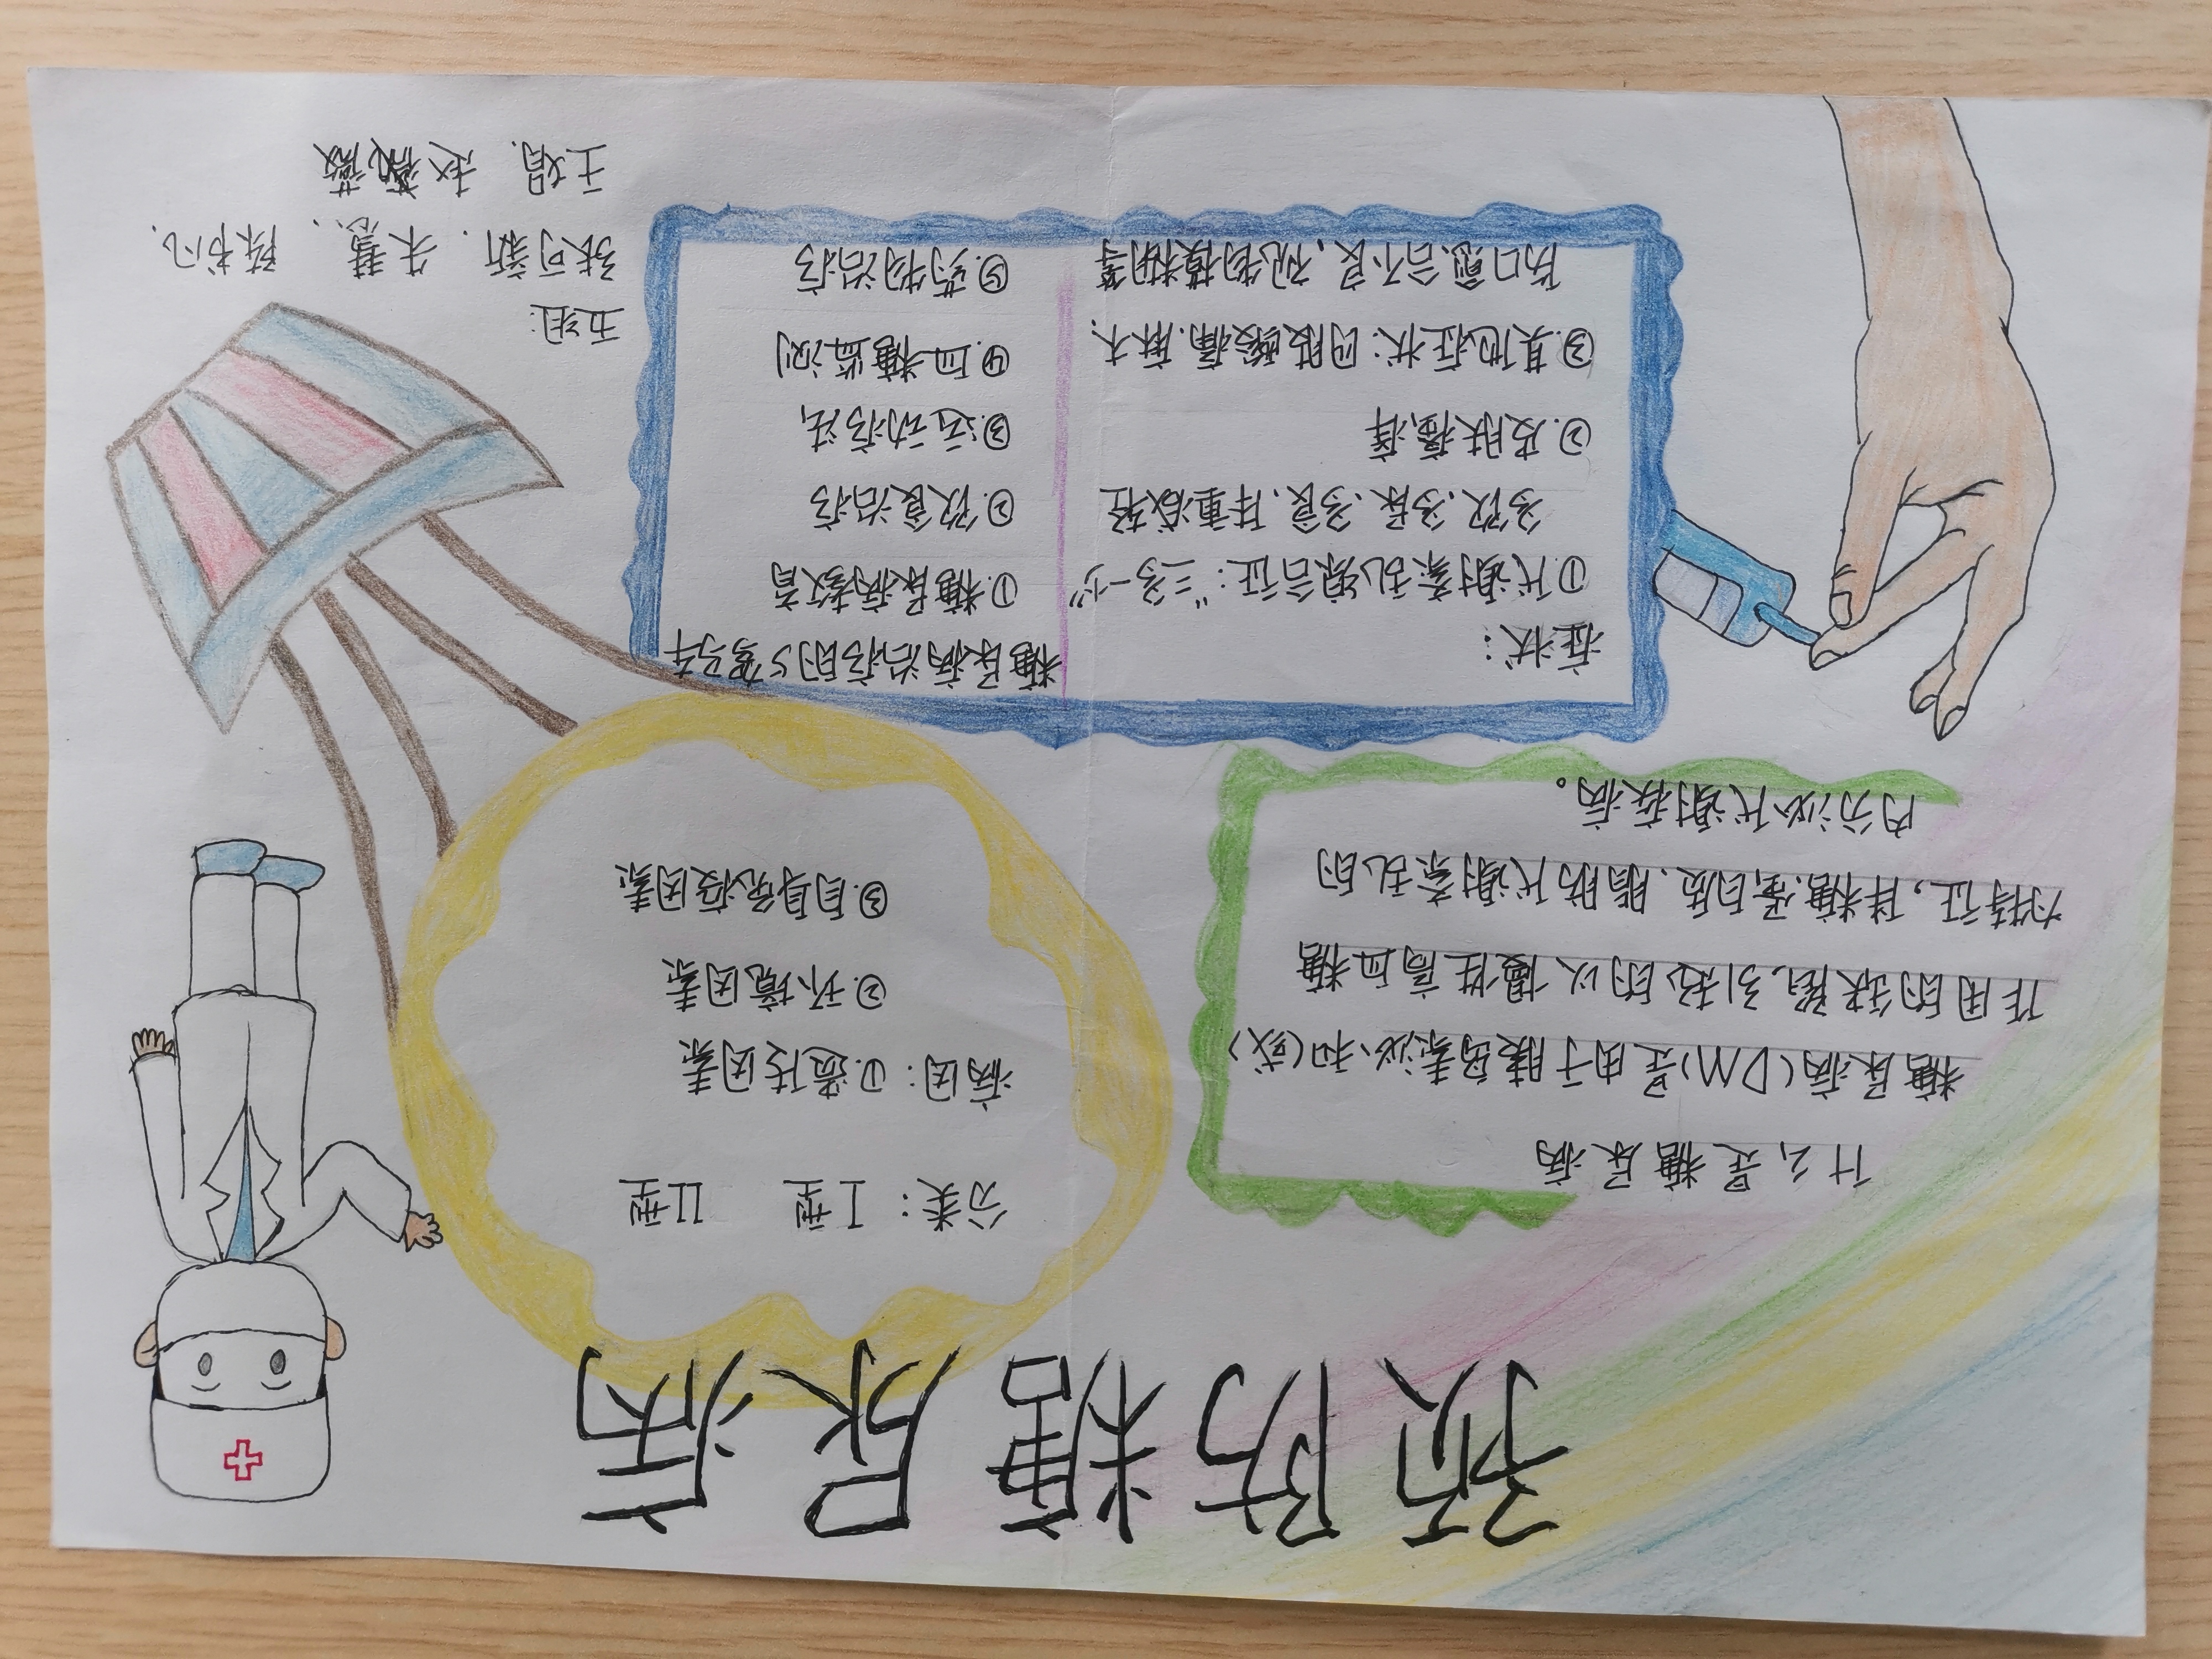 预防糖尿病
什么是糖尿病
糖尿病(DM)是由于胰岛素泌和(或)
作用的缺陷引起的以慢性高血糖
为特征,伴糖、蛋白质、脂肪代谢紊乱的
内分泌代谢疾病。
分类: I型 II型
病因: ①.遗传因素
②.环境因素
③.自身免疫因素
症状:
①代谢紊乱综合征:“三多一少”
多饮、多尿、多食、体重减轻
②.皮肤瘙痒
③.其他症状:四肢酸痛、麻木、
伤口愈合不良、视物模糊等
糖尿病治疗的5驾马车
①.糖尿病教育
②.饮食治疗
③.运动疗法
④.血糖监测
⑤.药物治疗
五组:
张可新、朱慧、陈书凡、
王娟、赵薇薇